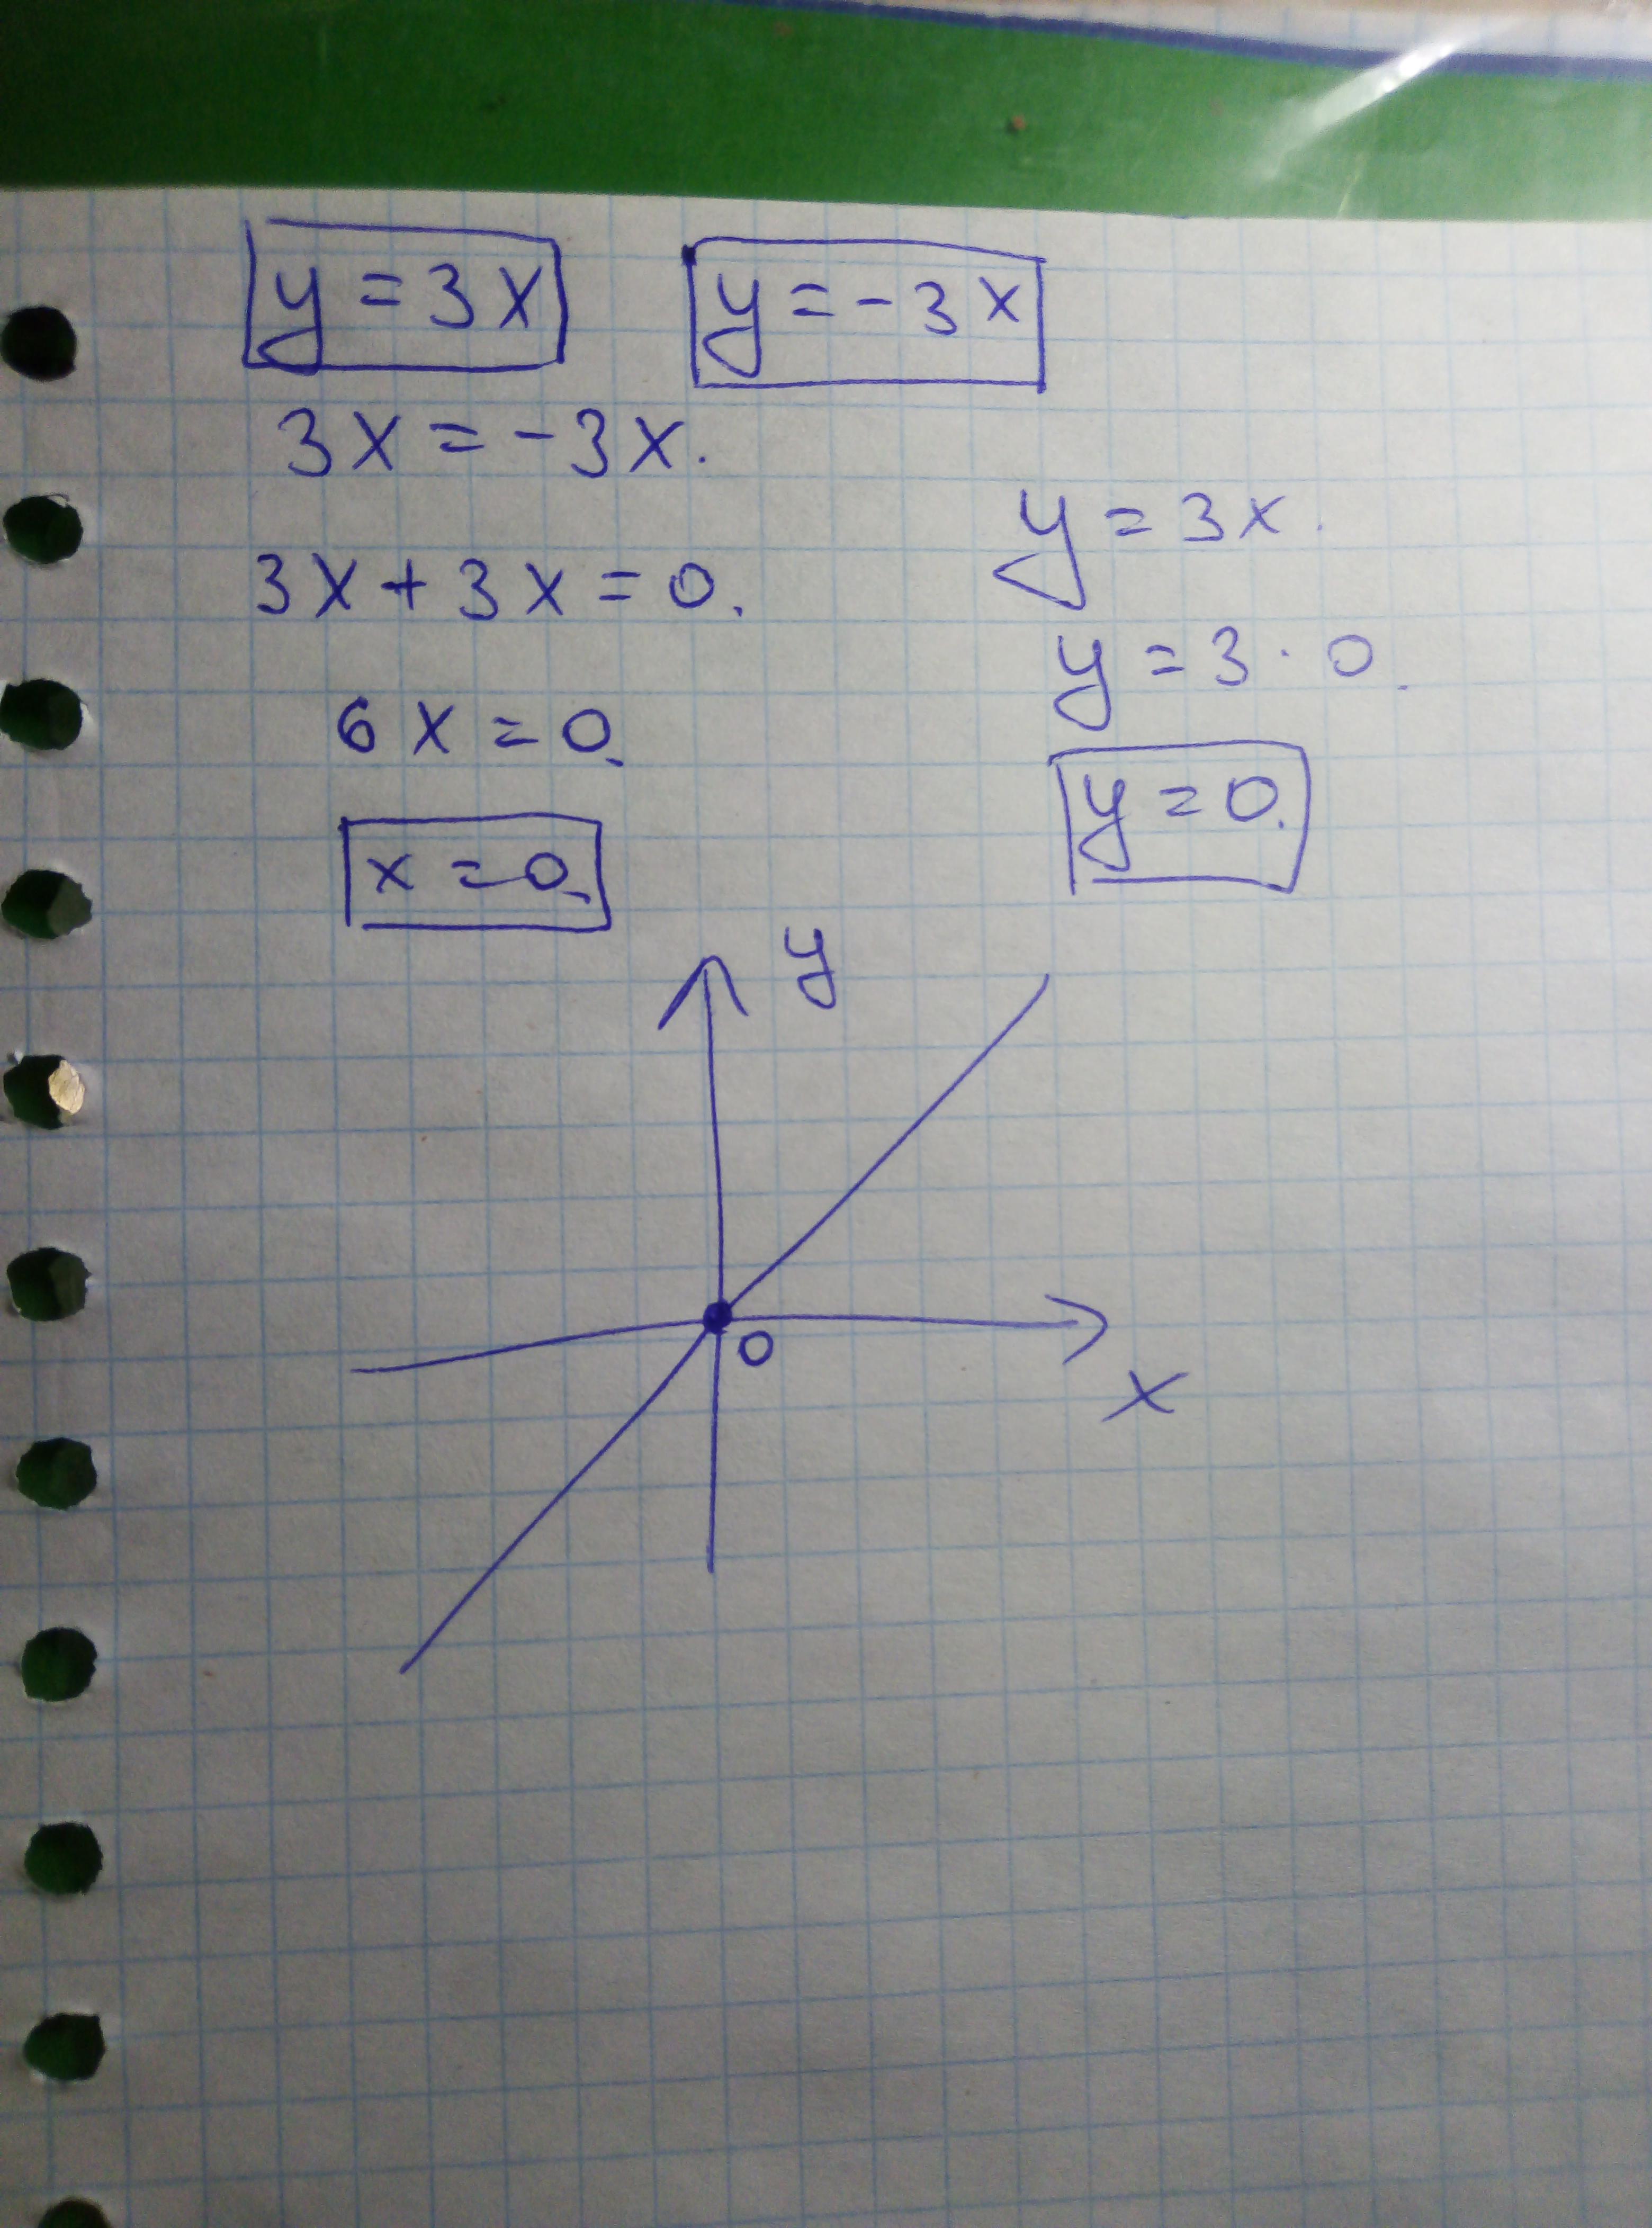 y = 3x
y = -3x
3x = -3x.
3x + 3x = 0.
6x = 0.
x = 0.
y = 3x.
y = 3 · 0.
y = 0.
y
0
x